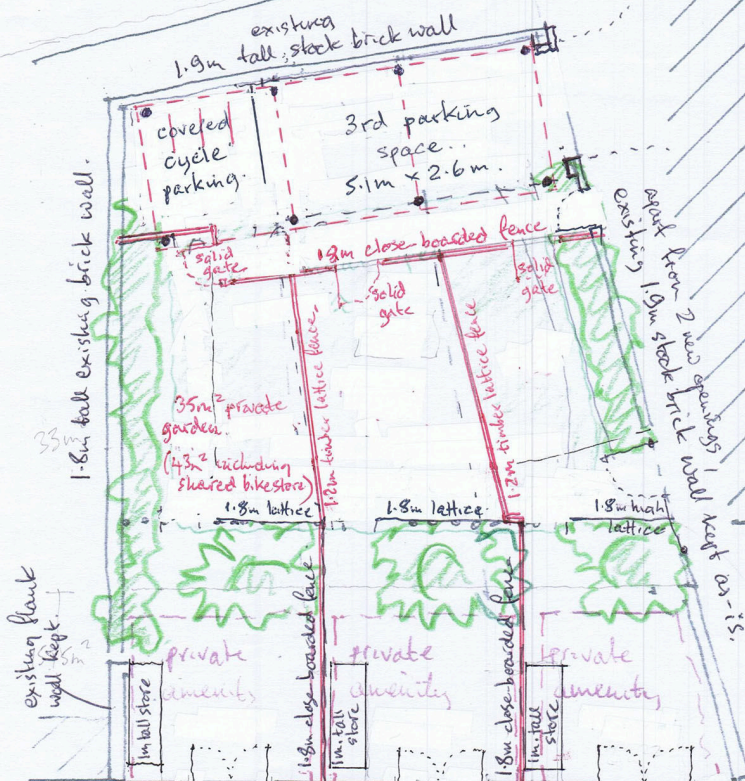 existing
1.9m tall, stock brick wall
covered
cycle
parking.
3rd parking
space..
5.1m × 2.6m.
1.8m tall existing brick wall.
apart from 2 new openings,
existing 1.9m stock brick wall kept as-is.
1.8m close-boarded fence
solid
gate
solid
gate
solid
gate
1.2m timber lattice fence.
1.2m timber lattice fence
35m² private
garden.
(43m² including
shared bikestore)
33m
1.8m lattice
1.8m lattice
1.8m high
lattice
existing flank
wall kept.
private
amenity
private
amenity
private
amenity
1.8m close-boarded fence
1.8m close-boarded fence
1m tall store
1m tall
store
1m tall
store